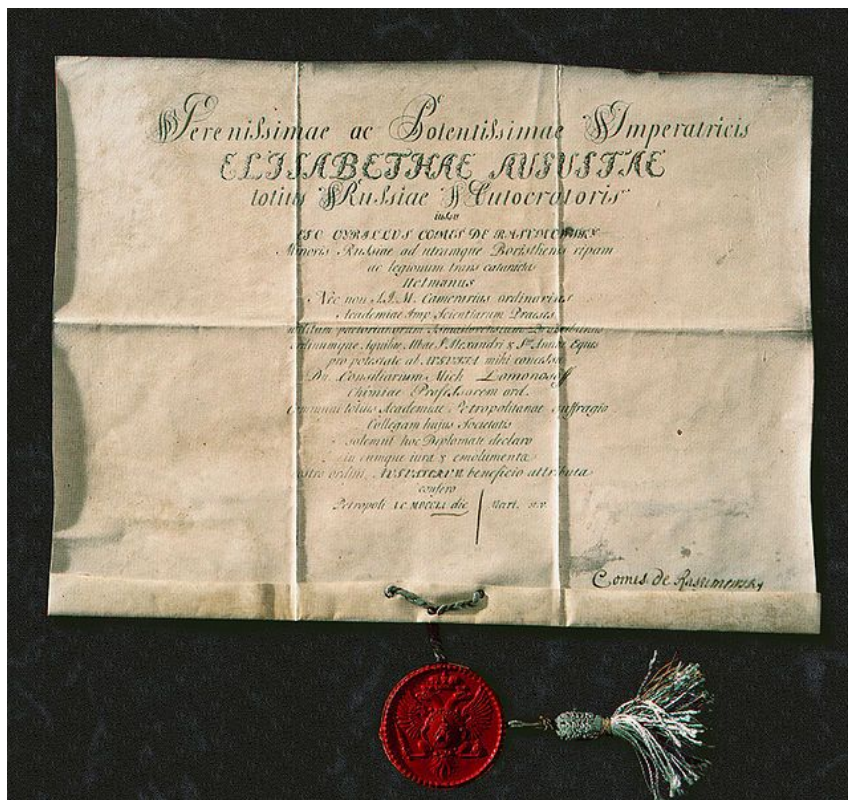 Serenissimae ac Potentissimae Imperatricis
ELISABETHAE AUGUSTAE
totius Russiae Autocratoris
iussu
EGO CYRILLUS COMES DE RASUMOWSKY
Minoris Russiae ad utramque Boristhenis ripam
ac legionum trans catarictas
Hetmanus
Nec non S.I.M. Camerarius ordinarius
Academiae Imp Scientiarum Praeses
ordinumque Aquilae Albae S. Alexandri & Stae Annae Eques
pro potestate ab AUGUSTA mihi concessa
Dn. Consiliarium Mich Lomonosoff
Chimiae Professorem ord.
Communi totius Academiae Petropolitanae suffragio
Collegam hujus Societatis
solemni hoc Diplomate declaro
in eumque iura & emolumenta
nostro ordini AUGUSTORUM beneficio attributa
confero
Petropoli die Mart. st.v.
Comes de Rasumowsky